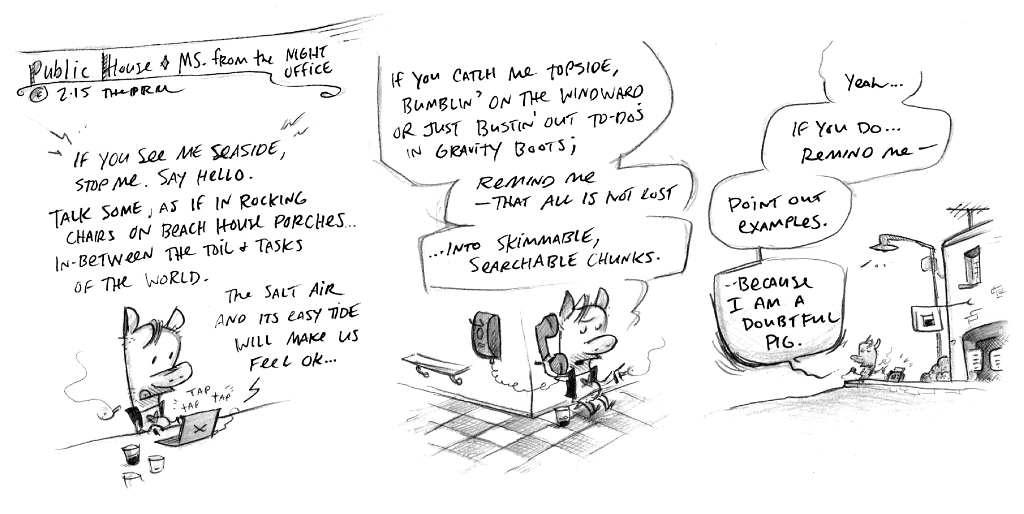 Public House & MS. from the NIGHT
OFFICE
2.15
IF YOU SEE ME SEASIDE,
STOP ME. SAY HELLO.
TALK SOME, AS IF IN ROCKING
CHAIRS ON BEACH HOUSE PORCHES...
IN-BETWEEN THE TOIL & TASKS
OF THE WORLD.
THE SALT AIR
AND ITS EASY TIDE
WILL MAKE US
FEEL OK...
TAP
TAP TAP
X
IF YOU CATCH ME TOPSIDE,
BUMBLIN' ON THE WINDWARD
OR JUST BUSTIN' OUT TO-DO'S
IN GRAVITY BOOTS;
REMIND ME
—THAT ALL IS NOT LOST
...INTO SKIMMABLE,
SEARCHABLE CHUNKS.
YEAH...
IF YOU DO...
REMIND ME—
POINT OUT
EXAMPLES.
--BECAUSE
I AM A
DOUBTFUL
PIG.